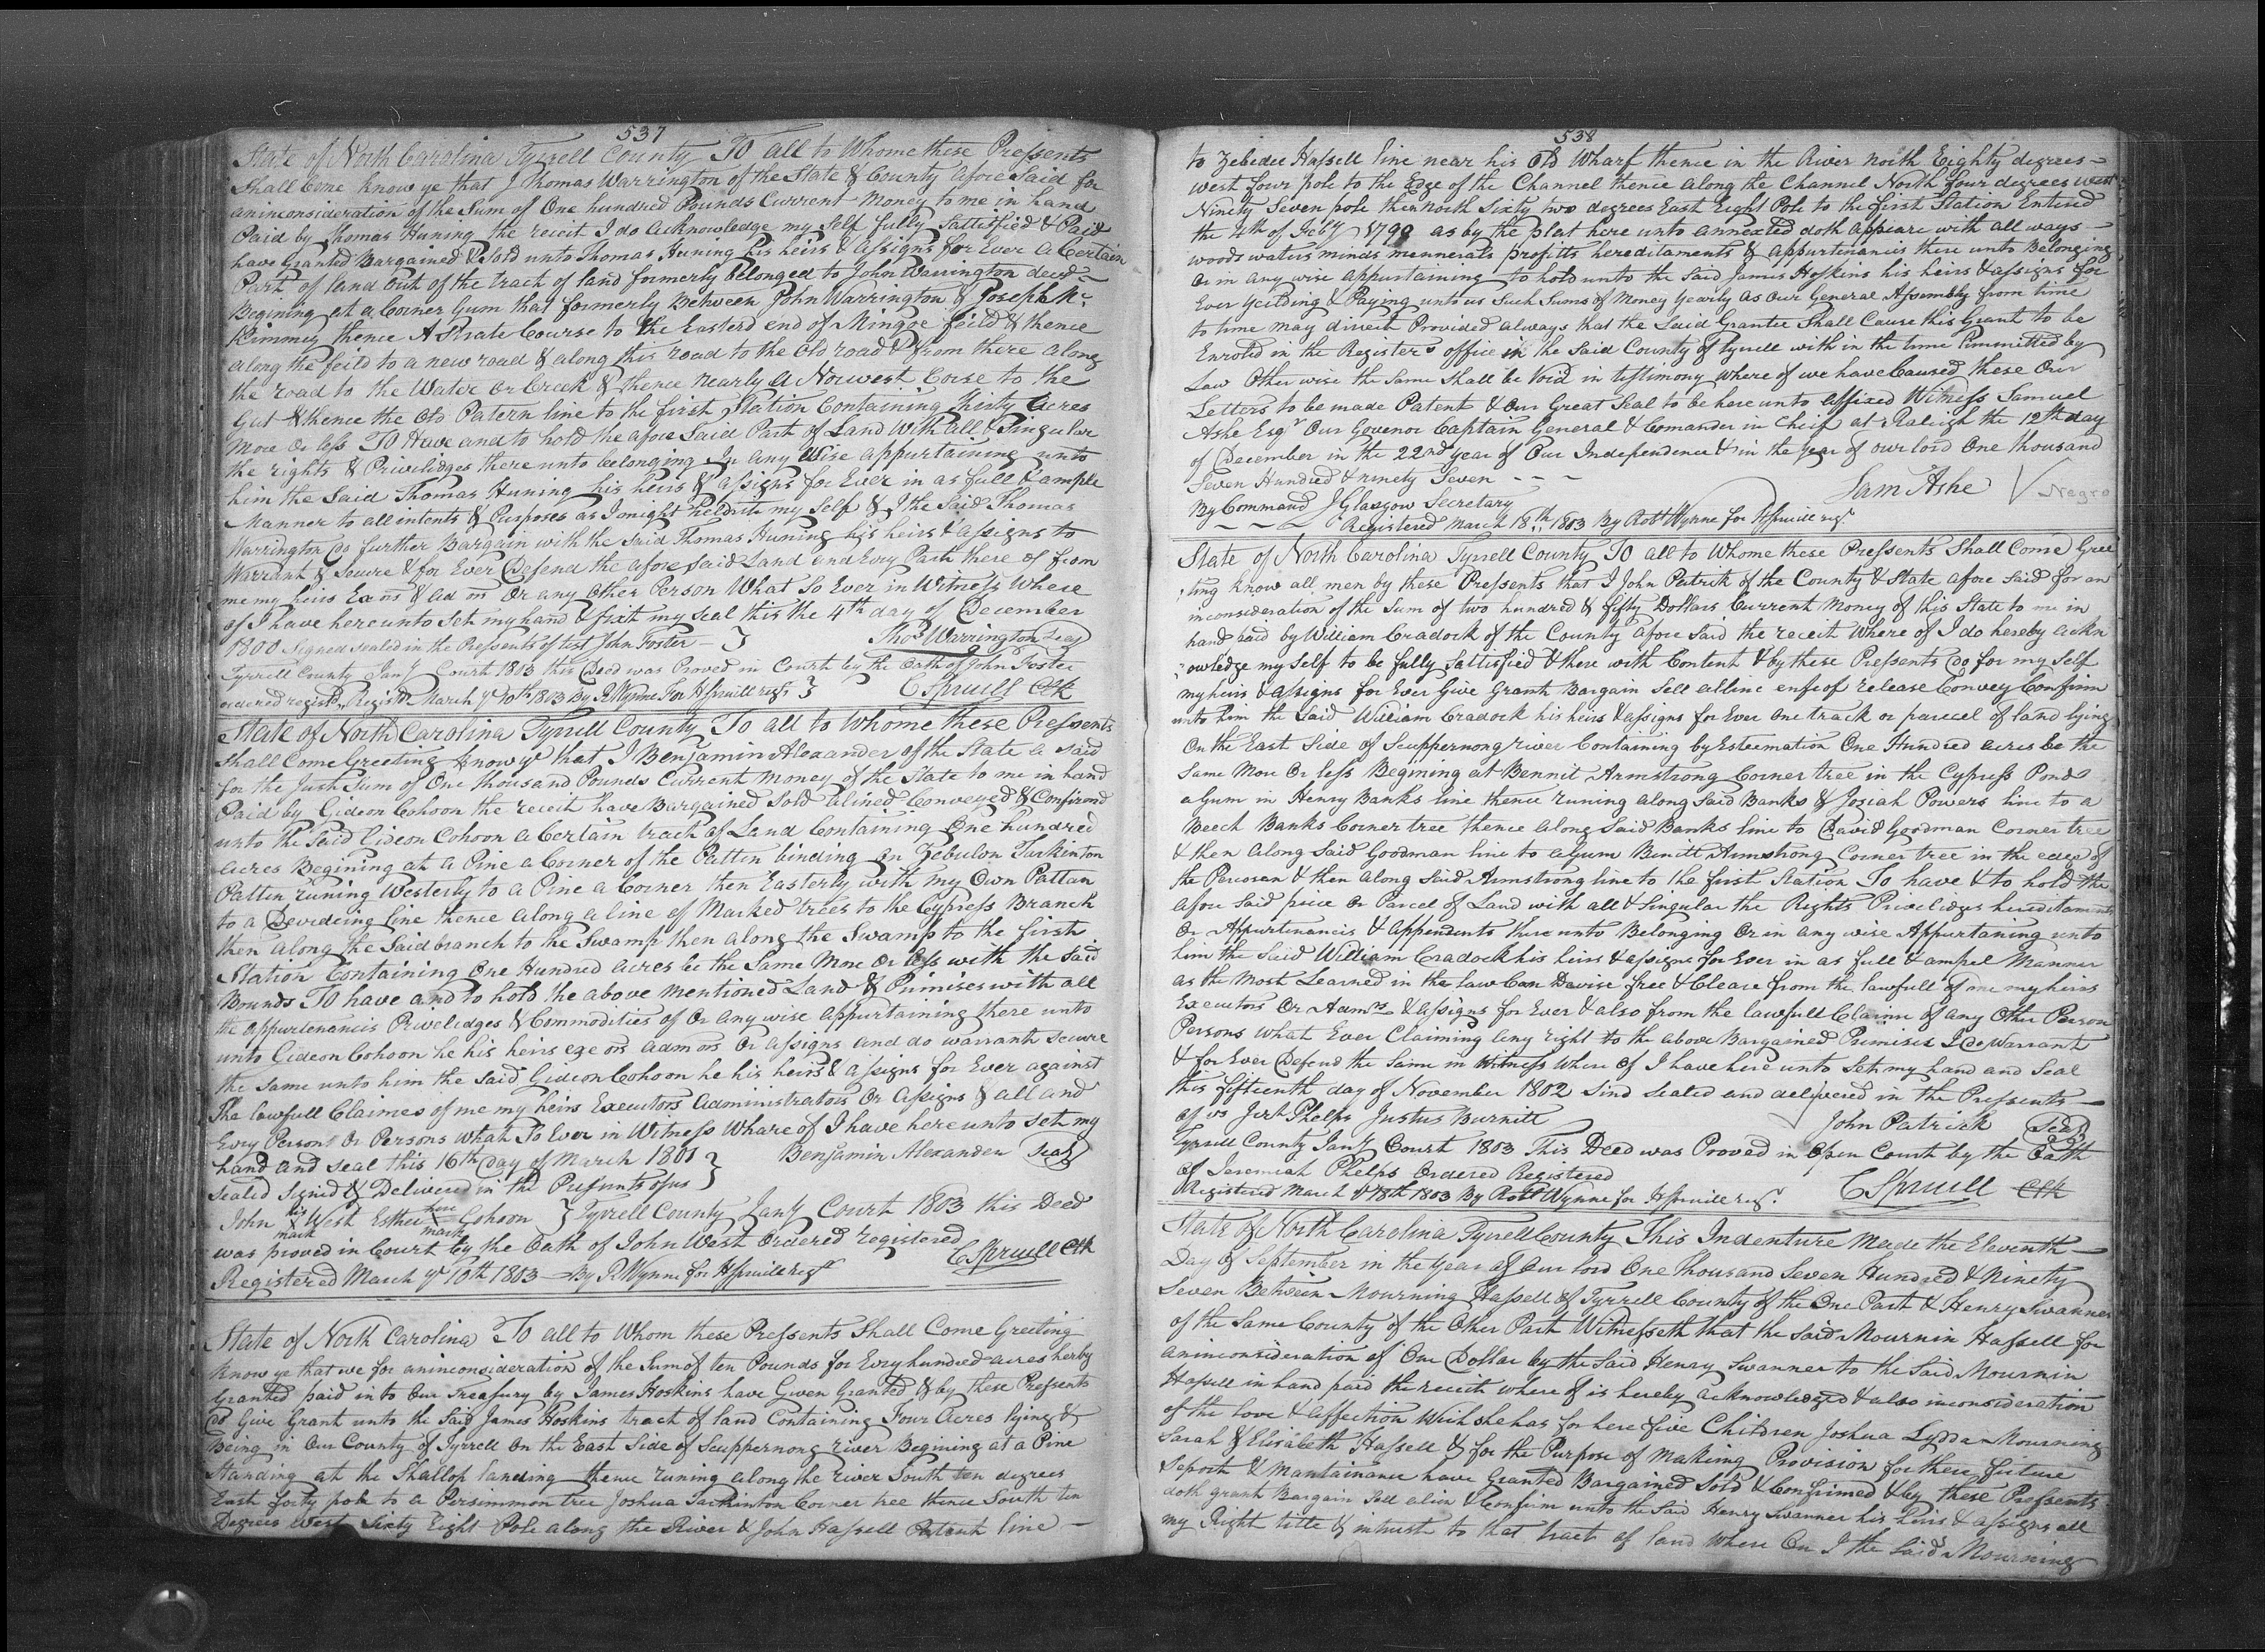 537
State of North Carolina Tyrrell County To all to Whome these Pressents
Shall Come know ye that I Thomas Warrington of the State & County afore Said for
an inconsideration of the Sum of One hundred Pounds Current Money to me in hand
Paid by Thomas Huning the receit I do acknowledge my Self fully Sattisfied & Paid
have Granted Bargained & Sold unto Thomas Huning his heirs & assigns for Ever a Certain
Part of land out of the tract of land formerly belonged to John Warrington decd
Begining at a Corner Gum that formerly Between John Warrington & Joseph Mc
Kimmey thence A Strate Course to the Easterd end of Mingoe feild & thence
along the feild to a new road & along this road to the old road & from there along
the road to the Water or Creek & thence nearly a Norwest Corse to the
Gut & thence the old Patern line to the first Station Containing thirty acres
More or less To Have and to hold the afore Said Part of Land With all & Singular
the rights & Privilidges there unto belonging In any Wise appurtaining unto
him the Said Thomas Huning his heirs & assigns for Ever in as full & ample
Manner to all intents & Purposes as I might my Self & I the Said Thomas
Warrington do further Bargain with the Said Thomas Huning his heirs & assigns to
Warrant & Secure & for Ever Defend the afore Said Land and Evry Part there of from
me my heirs Exrs & ad ors Or any Other Person What So Ever in Witness Where
of I have hereunto Set my hand & fixt my Seal this the 4th day of December
1800 Signed sealed in the Pressents of test John Foster } Thos Warrington Seal
Tyrrell County Jany Court 1803 this Deed was Proved in Court by the Oath of John Foster
ordered registd Registd March ye 10th 1803 By R Wynne for H Spruill regr } C Spruill Clk
State of North Carolina Tyrrell County To all to Whome these Pressents
Shall Come Greeting know ye that I Benjamin Alexander of the State a Said
for the Just Sum of One thousand Pounds Current money of the State to me in hand
Paid by Gideon Cohoon the receit have Bargained Sold alined Conveyed & Confirmd
unto the Said Gideon Cohoon a Certain track of Land Containing One hundred
acres Begining at a Pine a Corner of the Pattin binding on Zebulon Tarkinton
Pattin runing Westerly to a Pine a Corner then Easterly with my Own Pattan
to a Devideing line thence along a line of Marked trees to the Cypress Branch
then along the Said branch to the Swamp then along the Swamp to the first
Station Containing One Hundred acres be the Same More Or less with the Said
Bounds To have and to hold the above mentioned Land & Primises with all
the appurtenancis Priveledges & Commodities of Or any wise appurtaining there unto
unto Gideon Cohoon he his heirs exe ors adm ors Or assigns and do warrant secure
the same unto him the Said Gideon Cohoon he his heirs & assigns for Ever against
The lawfull Claimes of me my heirs Executors administrators Or assigns & all and
Evry Person Or Persons what So Ever in Witness Whare of I have here unto set my
hand and seal this 16th Day of March 1801 } Benjamin Alexander Seal
sealed Signed & Delivered in the Presents of us
John his X mark West Esther her X mark Cohoon } Tyrrell County Jany Court 1803 this Deed
was proved in Court by the Oath of John West Ordered registered
Registered March ye 10th 1803 By R Wynne for H Spruill regr C Spruill Clk
State of North Carolina To all to Whom these Pressents Shall Come Greeting
Know ye that we for an inconsideration of the Sum of ten Pounds for Evry hundred acres herby
Granted paid in to Our Treasury by James Hoskins have Given Granted & by these Pressents
do Give Grant unto the Said James Hoskins tract of land Containing Four Acres lying &
Being in Our County of Tyrrell On the East Side of Scuppernong river Begining at a Pine
Standing at the Shallop landing thence runing along the river South ten degrees
East forty pole to a Persimmon tree Joshua Tarkinton Corner tree thence South ten
Degrees West Sixty Eight Pole along the River & John Hassell Patent line
538
to Zebedee Hassell line near his Old Wharf thence in the River north Eighty degrees
west four pole to the Edge of the Channel thence along the Channel North four degrees west
Ninety Seven pole then north Sixty two degrees East Eight Pole to the first Station Entred
the 4th of Feby 1790 as by the plat here unto annexted doth appeare with all ways
woods waters minds mennerals profitts hereditaments & appurtinancis there unto Belonging
Or in any wise appurtaining to hold unto the Said James Hoskins his heirs & assigns for
Ever Yeilding & Paying unto us Such Sums of Money Yearly as Our General Assembly from time
to time may direct Provided always that the Said Grantee Shall Cause this Grant to be
Enroled in the Registers office in the Said County of Tyrrell with in the time limmitted by
Law Other wise the Same Shall be Void in testimony where of we have Caused these Our
Letters to be made Patent & Our Great Seal to be here unto affixed Witness Samuel
Ashe Esqr Our Govenor Captain General & Comander in Cheif at Raleigh the 12th day
of December in the 22nd year of Our Independence & in the Year of our lord One thousand
Seven Hundred & ninety Seven
By Command J Glasgow Secretary Sam Ashe Negro
Registered March 18th 1803 By Robt Wynne for H Spruill regr
State of North Carolina Tyrrell County To all to Whome these Pressents Shall Come Gree
ting know all men by these Pressents that I John Patrick of the County & State afore Said for an
inconsideration of the Sum of two hundred & fifty Dollars Current Money of this State to me in
hand paid by William Cradock of the County afore Said the receit Where of I do hereby ackn
owledge my Self to be fully Sattisfied & there with Content & by these Pressents do for my Self
my heirs & assigns for Ever Give Grant Bargain Sell alline enfeof release Convey Confirm
unto him the Said William Cradock his heirs & assigns for Ever One track or parcel of land lying
On the East Side of Scuppernong river Containing by Esteemation One Hundred acres be the
Same More Or less Begining at Bennit Armstrong Corner tree in the Cypress Pond
a Gum in Henry Banks line thence runing along Said Banks & Josiah Powers line to a
Beech Banks Corner tree thence along Said Banks line to David Goodman Corner tree
& then along Said Goodman line to a Gum Benitt Armstrong Corner tree in the edge of
the Percosan & then along Said Armstrong line to the first Station To have & to hold the
afore Said peice Or Parcel of Land with all & Singular the Rights Priveledges hereditaments
Or Appurtinancis & appendents there unto Belonging Or in any wise Appurtaning unto
him the Said William Cradock his heirs & assigns for Ever in as full & ampel Manner
as the Most Learned in the law Can Devise free & Cleare from the lawfull of me my heirs
Executors Or Admrs & assigns for Ever & also from the lawfull Claim of any Other Person
Persons what Ever Claiming any right to the above Bargained Primises I do Warrant
& for Ever Defend the Same in Witness Where of I have here unto Set my hand and Seal
this fifteenth day of November 1802 Sind Sealed and delivered in the Pressents
of us Jerh Phelps Justus Burnitt John Patrick Seal
Tyrrell County Jany Court 1803 This Deed was Proved in Open Court by the Oath
of Jeremiah Phelps Ordered Registered
Registered March ye 18th 1803 By Robt Wynne for H Spruill regr. C Spruill Clk
State of North Carolina Tyrrell County This Indenture Made the Eleventh
Day of September in the Year of Our lord One Thousand Seven Hundred & Ninety
Seven Between Mourning Hassell of Tyrrell County of the One Part & Henry Swanner
of the Same County of the Other Part Witnesseth that the Said Mournin Hassell for
an inconsideration of One Dollar by the Said Henry Swanner to the Said Mournin
Hassell in hand paid the receit where of is hereby acknowledged & also inconsideration
of the love & affection Wich she has for here five Children Joshua Lydda Mourning
Sarah & Elisabeth Hassell & for the Purpose of Making Provision for there future
Suport & Mantainance have Granted Bargained Sold & Confirmed & by these Pressents
doth grant Bargain Sell alien & Confirm unto the Said Henry Swanner his heirs & assigns all
my Right title & intrust to that tract of land Where On I the Said Mourning